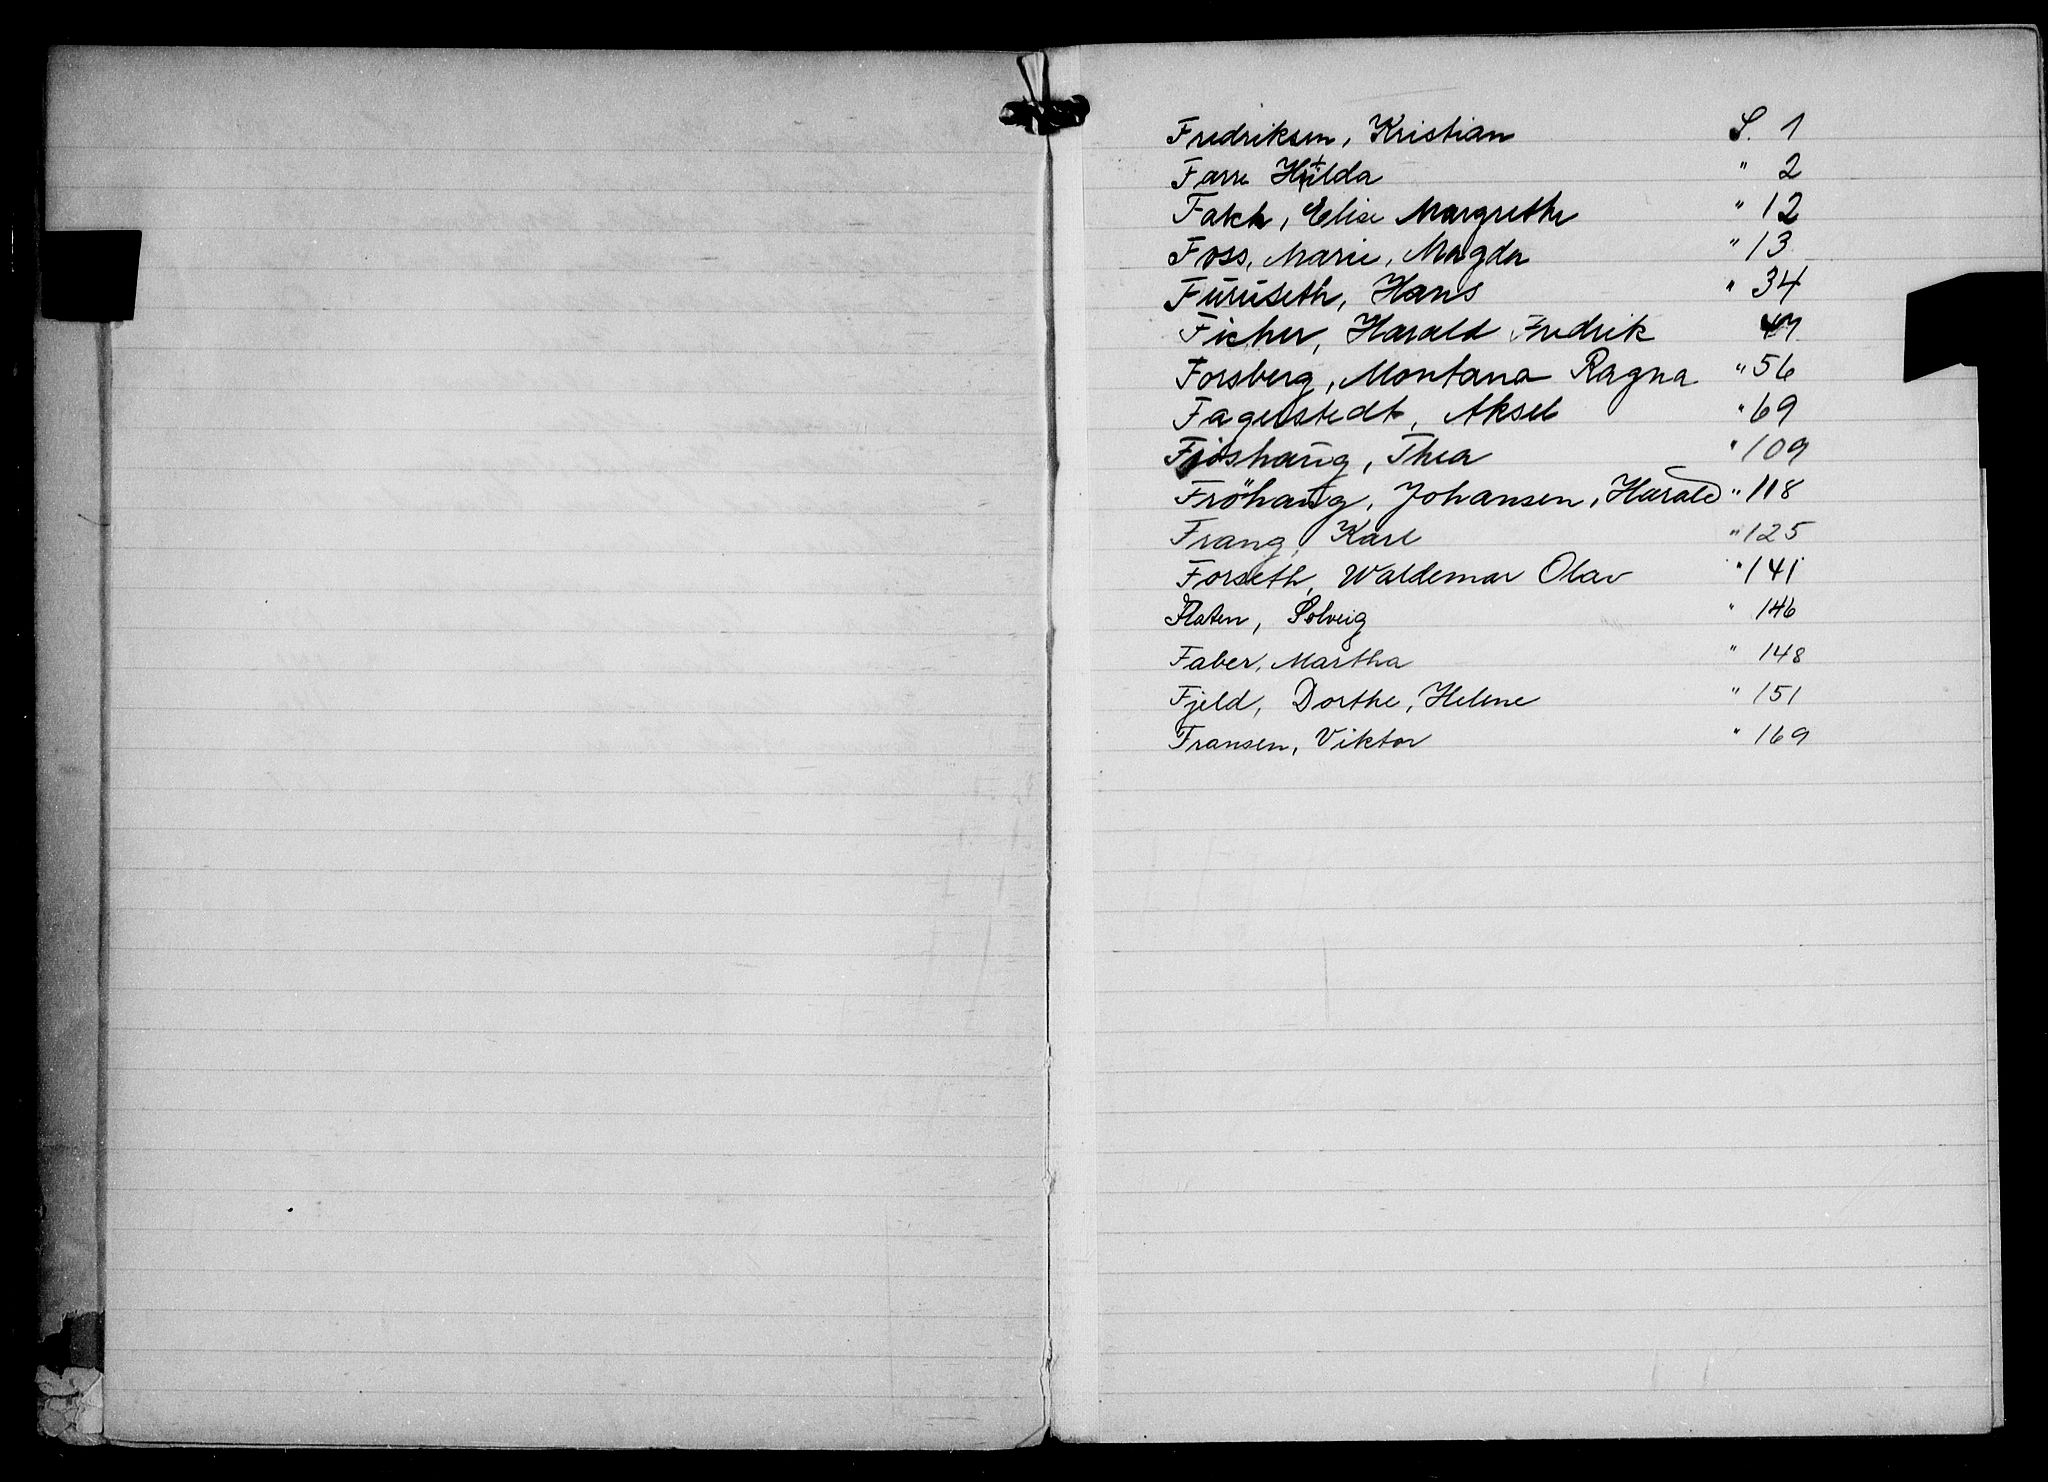 Fredriksen, Kristian S. 1
Farre Hilda " 2
Falch, Elise Margrethe " 12
Foss, Marie, Magda " 13
Furuseth, Hans " 34
Ficher, Harald Fredrik 47
Forsberg, Montana Ragna " 56
Fagerstedt, Aksel " 69
Fjøshaug, Thea " 109
Fröhaug, Johansen, Harald " 118
Frang, Karl " 125
Forseth, Waldemar Olav " 141
Flaten, Solveig " 146
Faber, Martha " 148
Fjeld, Dorthe, Helene " 151
Fransen, Viktor " 169